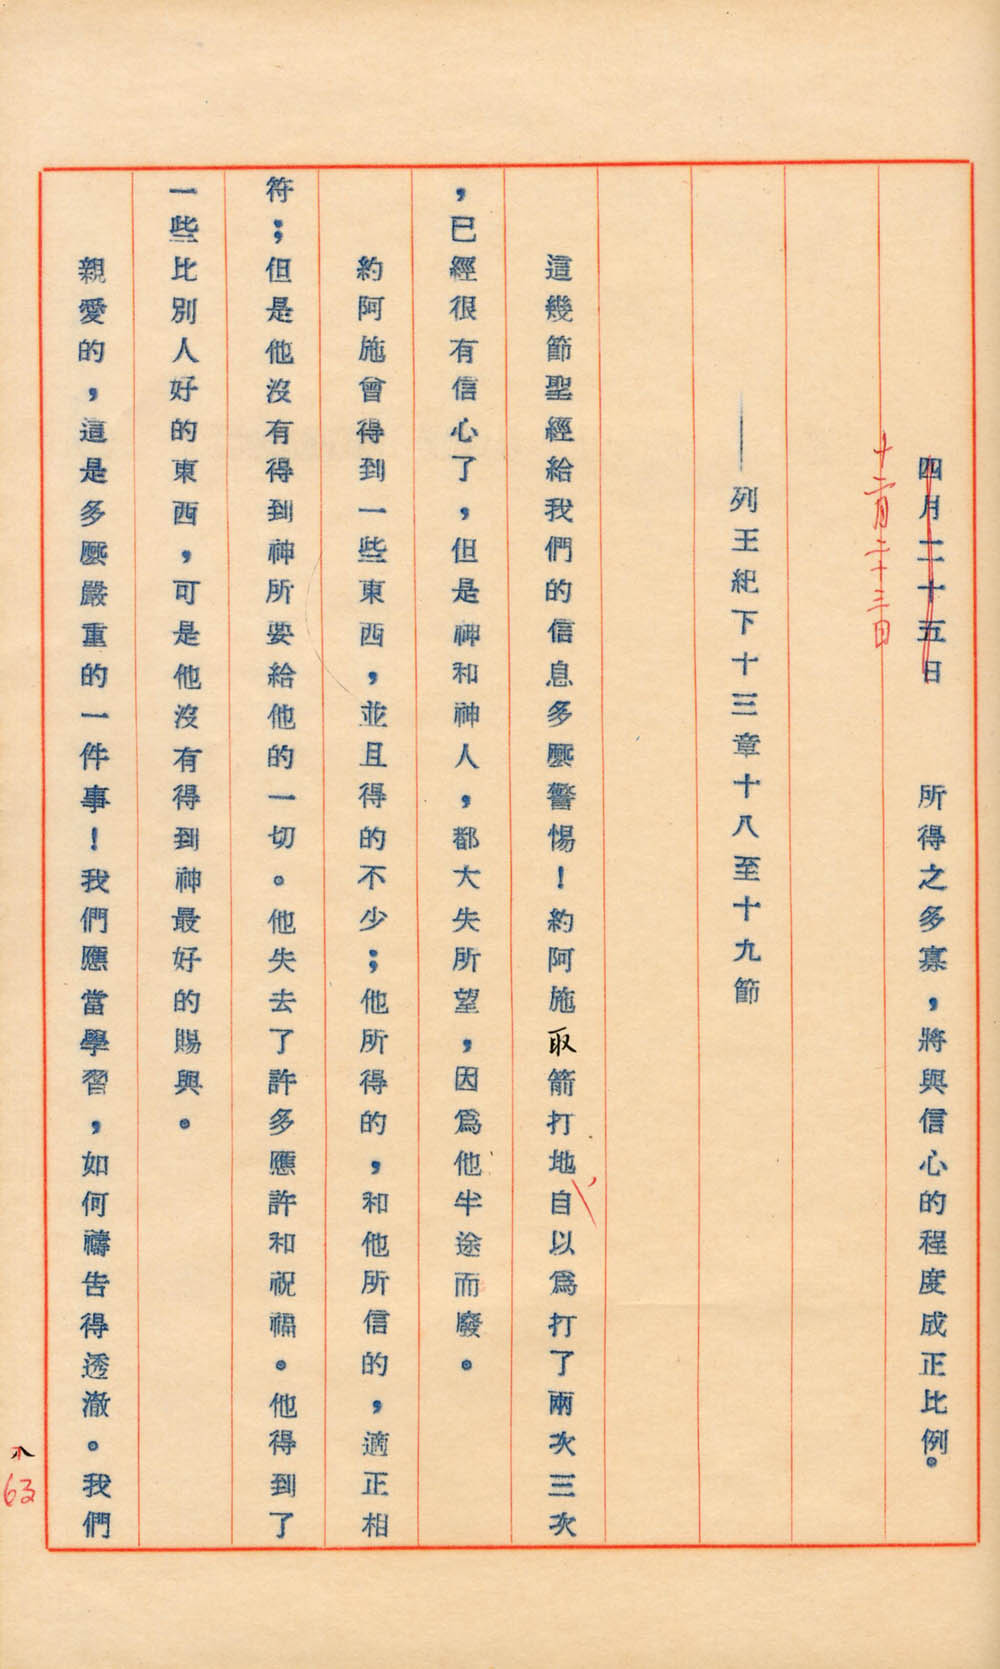 四月二十五日　所得之多寡，將與信心的程度成正比例。
十二月二十三日
——列王紀下十三章十八至十九節
這幾節聖經給我們的信息多麼警惕！約阿施取箭打地自以爲打了兩次三次
，已經很有信心了，但是神和神人，都大失所望，因爲他半途而廢。
約阿施曾得到一些東西，並且得的不少；他所得的，和他所信的，適正相
符；但是他沒有得到神所要給他的一切。他失去了許多應許和祝福。他得到了
一些比別人好的東西，可是他沒有得到神最好的賜與。
親愛的，這是多麼嚴重的一件事！我們應當學習，如何禱告得透澈。我們